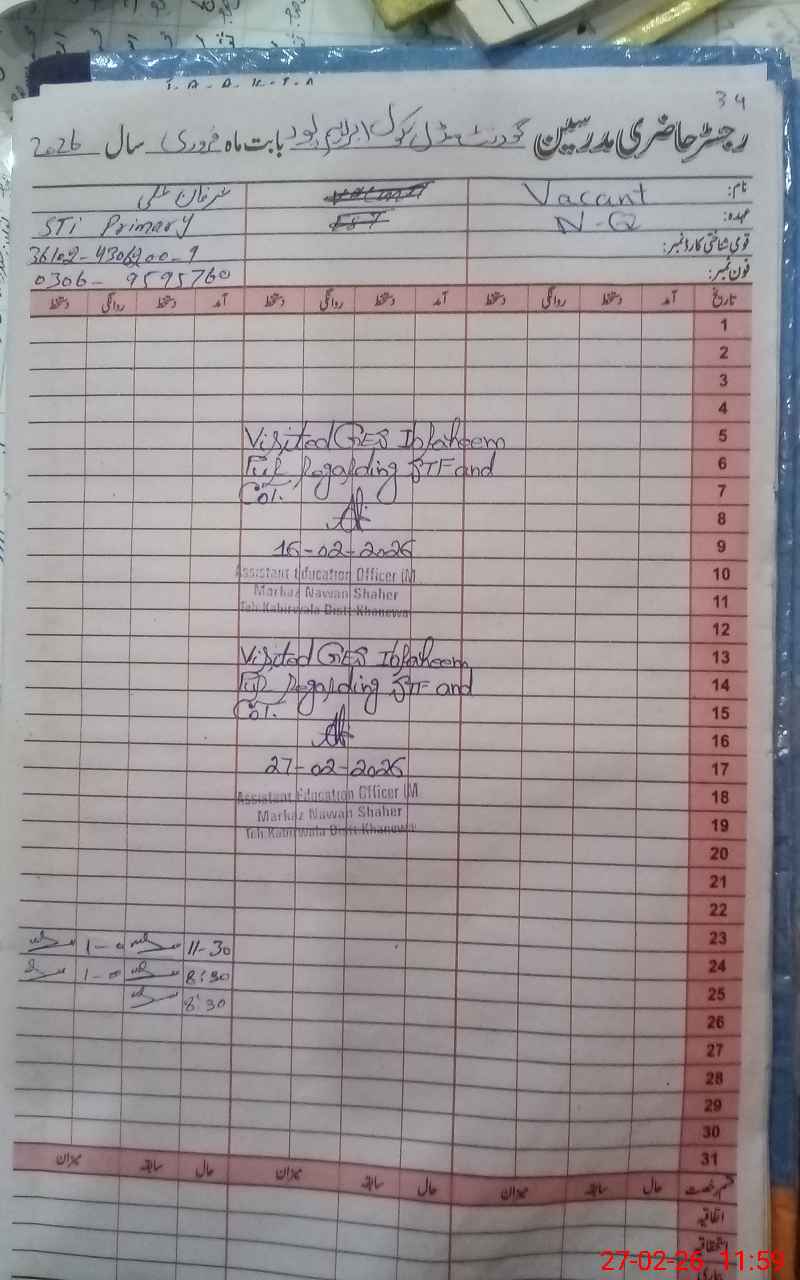 34
رجسٹر حاضری مدرسین گورنمنٹ مڈل سکول ابراہیم پور بابت ماہ فروری سال 2026
نام: Vacant عرفان علی
عہدہ: N-Q EST STi Primary
قومی شناختی کارڈ نمبر: 36102-4306200-9
فون نمبر: 0306-9595760
تاریخ آمد دستخط روانگی دستخط آمد دستخط روانگی دستخط آمد دستخط روانگی دستخط
1
2
3
4
5
6
7
8
9
10
11
12
13
14
15
16
17
18
19
20
21
22
23
24
25
26
27
28
29
30
31
Visited GES Ibraheem
Pur Regarding STF and
Cot.
16-02-2026
Assistant Education Officer (M
Markaz Nawan Shaher
Teh.Kabirwala Distt Khanewal
Visited GES Ibraheem
Pur Regarding STF and
Cot.
27-02-2026
Assistant Education Officer (M
Markaz Nawan Shaher
Teh.Kabirwala Distt Khanewal
11-30 1-0
8:30 1-0
8:30
قسم رخصت حال سابقہ میزان حال سابقہ میزان حال سابقہ میزان
اتفاقیہ
استحقاقیہ
27-02-26 11:59